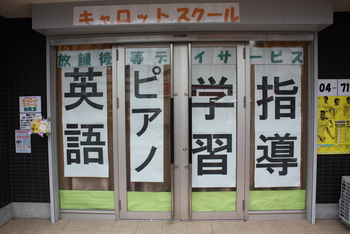 キャロットスクール
放課後等デイサービス
英語
ピアノ
学習
指導
04-71